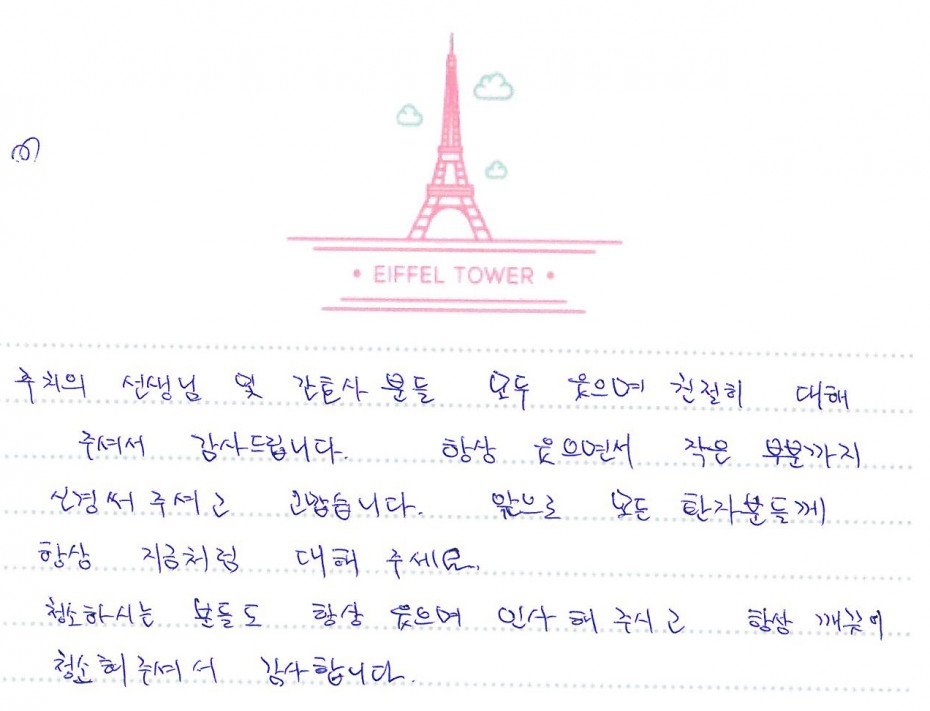 • EIFFEL TOWER •
주치의 선생님 및 간호사 분들 모두 웃으며 친절히 대해
주셔서 감사드립니다. 항상 웃으면서 작은 부분까지
신경써 주셔고 고맙습니다. 앞으로 모든 환자분들께
항상 지금처럼 대해 주세요.
청소하시는 분들도 항상 웃으며 인사 해 주시고 항상 깨끗이
청소해주셔서 감사합니다.